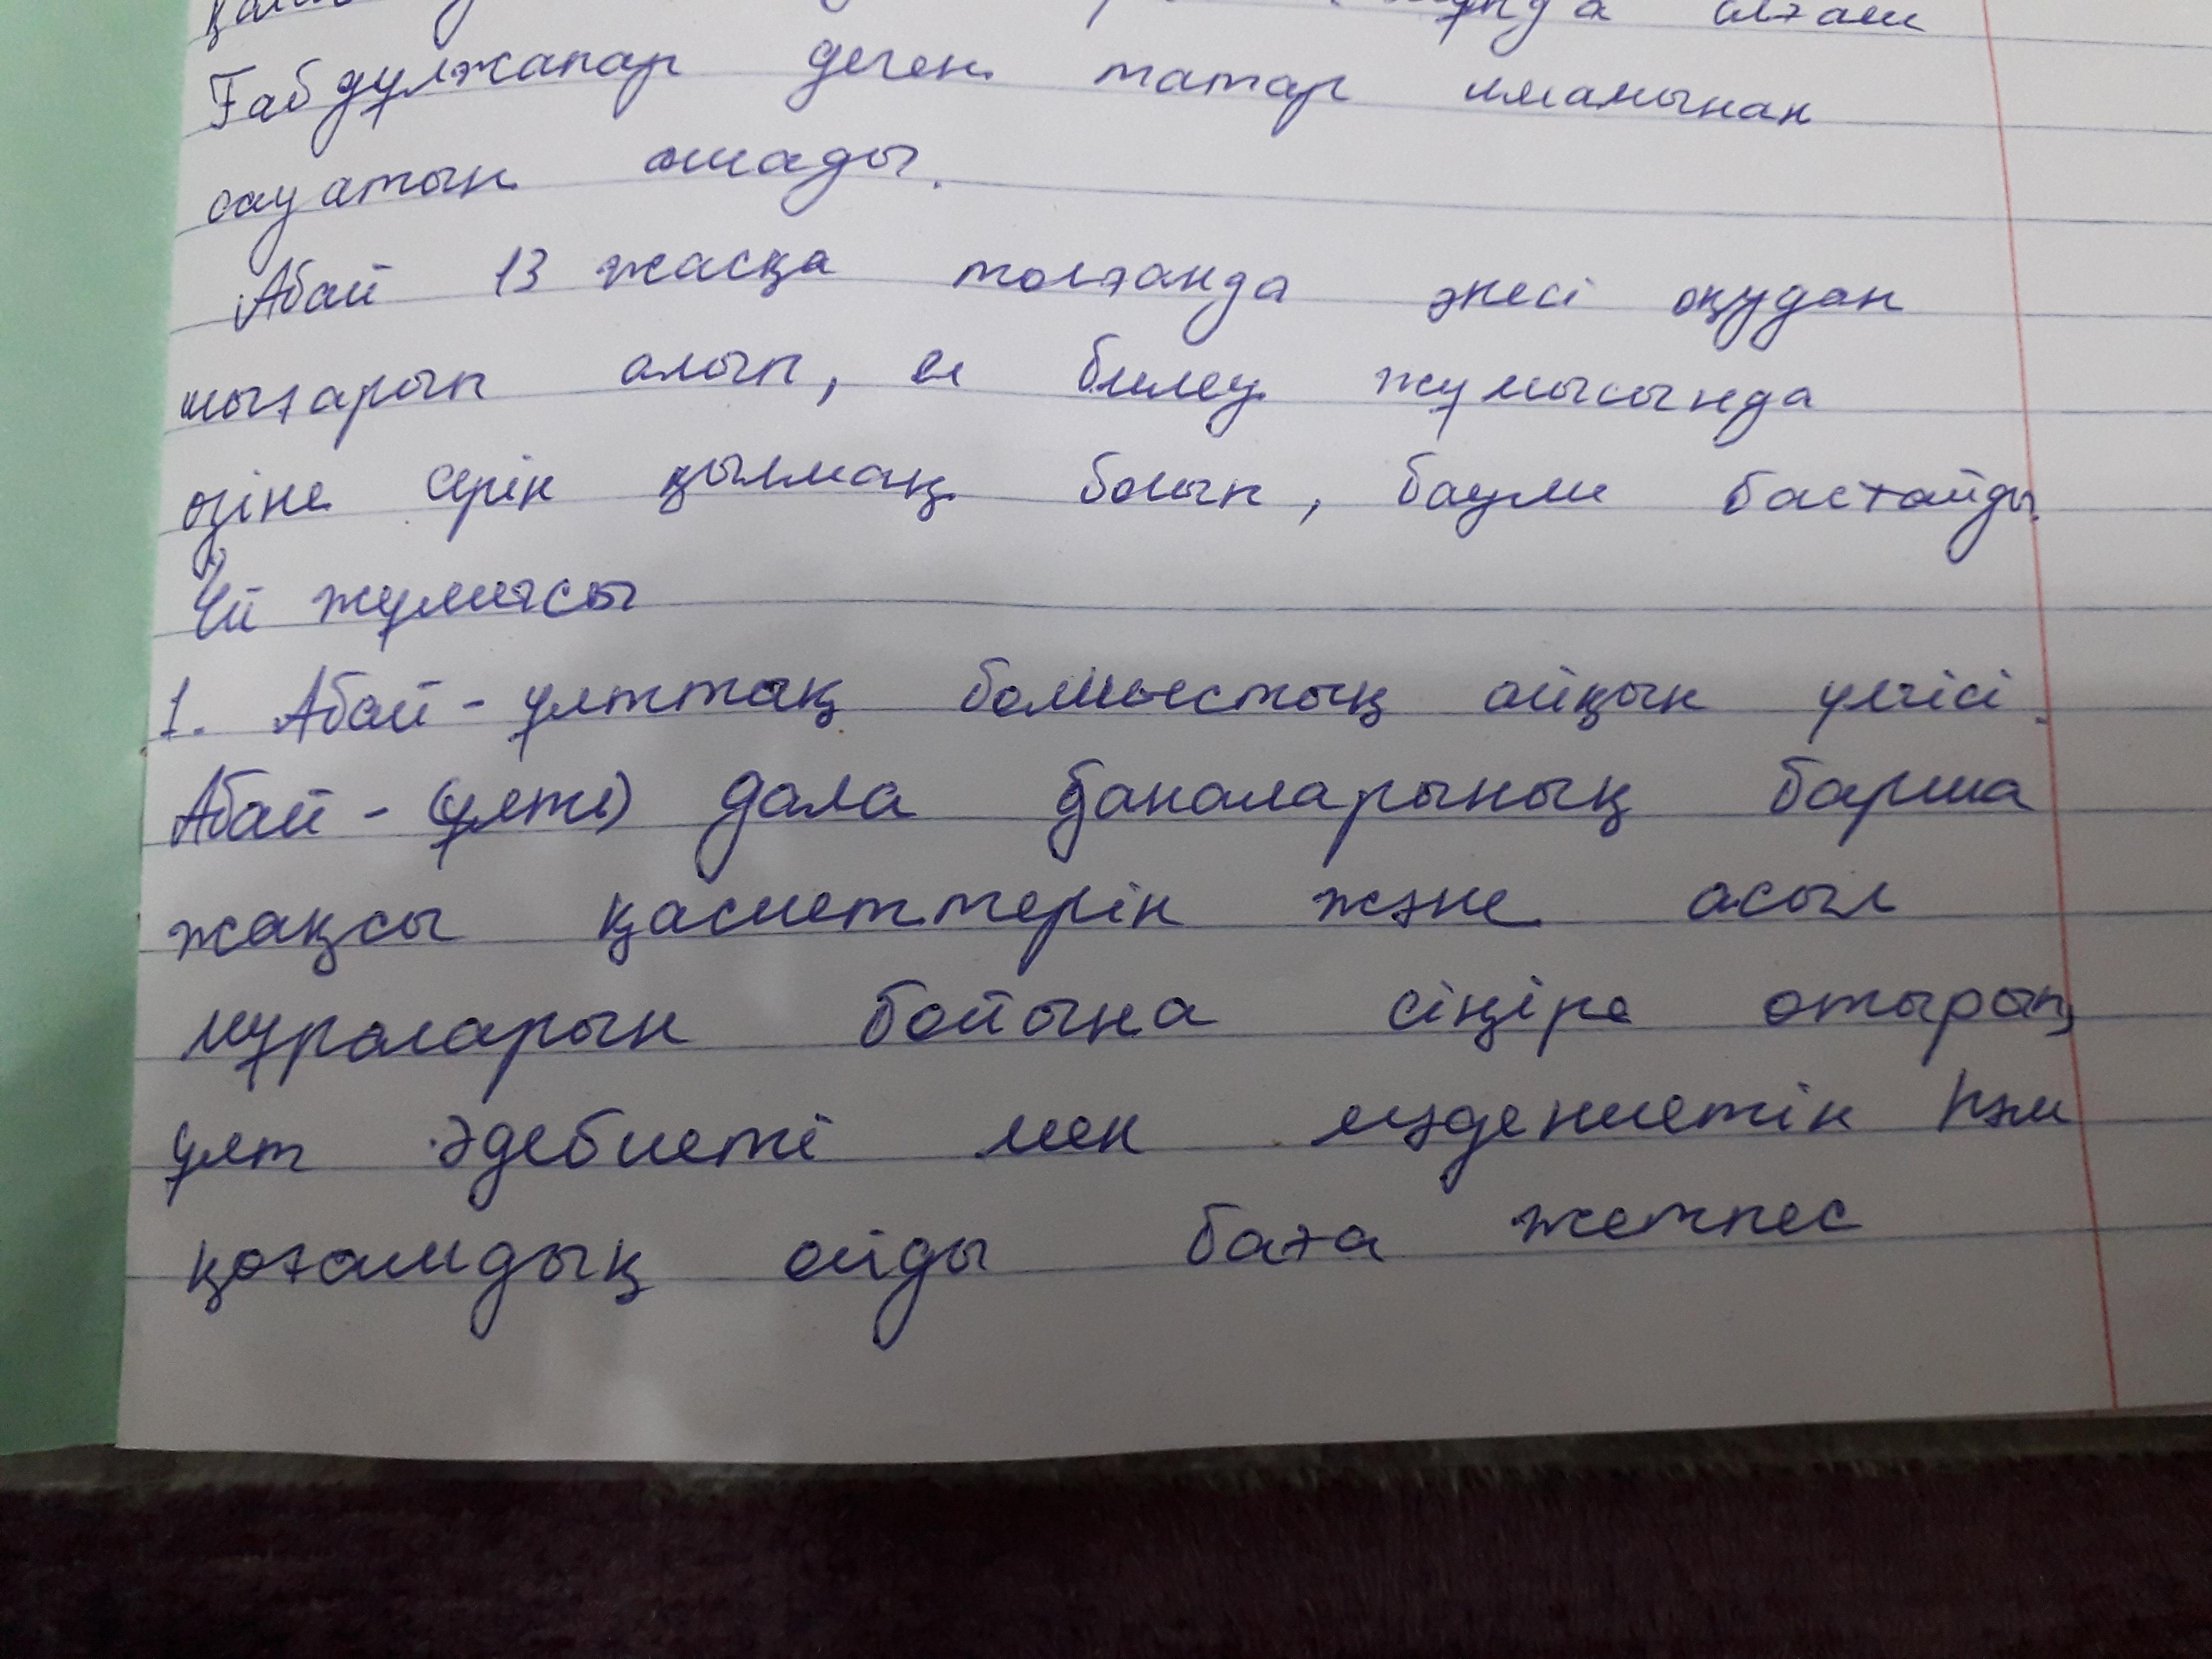 алғаш
Ғабдұлжапар деген татар имамынан
сауатын ашады.
Абай 13 жасқа толғанда әкесі оқудан
шығарып алып, ел билеу жұмысында
өзіне серік қылмақ болып, баули бастайды.
Үй жұмысы
1. Абай - ұлттық болмыстың айқын үлгісі.
Абай - (ұлты) дала даналарының барша
жақсы қасиеттерін және асыл
мұраларын бойына сіңіре отырып,
ұлт әдебиеті мен мәдениетін һәм
қоғамдық ойды баға жетпес